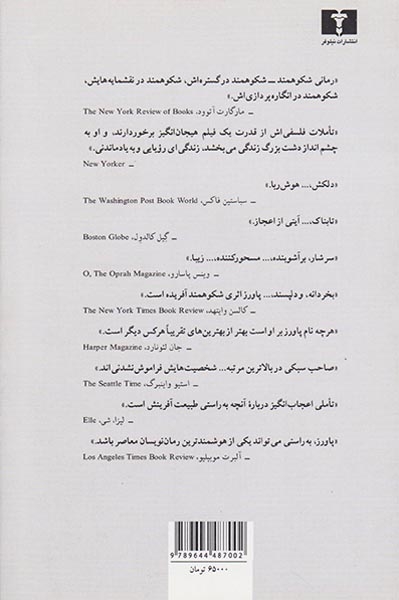 انتشارات نیلوفر
«رمانی شکوهمند ــ شکوهمند در گستره‌اش، شکوهمند در نقشمایه‌هایش،
شکوهمند در انگاره‌پردازی‌اش.»
ــ مارگارت آتوود، The New York Review of Books
«تأملات فلسفی‌اش از قدرت یک فیلم هیجان‌انگیز برخوردارند. و او به
چشم‌انداز دشت بزرگ زندگی می‌بخشد، زندگی‌ای رؤیایی و به یادماندنی.»
ــ New Yorker
«دلکش،... هوش‌ربا.»
ــ سباستین فاکس، The Washington Post Book World
«تابناک،... آیتی از اعجاز.»
ــ گیل کالدول، Boston Globe
«سرشار، برآشوبنده،... مسحورکننده،... زیبا.»
ــ وینس پاسارو، O, The Oprah Magazine
«بخردانه، و دلپسند،... پاورز اثری شکوهمند آفریده است.»
ــ کالسن وایتهد، The New York Times Book Review
«هرچه نام پاورز بر او است بهتر از بهترین‌های تقریباً هرکس دیگر است.»
ــ جان لئونارد، Harper Magazine
«صاحب سبکی در بالاترین مرتبه... شخصیت‌هایش فراموش‌نشدنی‌اند.»
ــ استیو واینبرگ، The Seattle Time
«تأملی اعجاب‌انگیز دربارهٔ آنچه به راستی طبیعت آفرینش است.»
ــ لیزا، شی، Elle
«پاورز، به راستی می‌تواند یکی از هوشمندترین رمان‌نویسان معاصر باشد.»
ــ آلبرت موبیلیو، Los Angeles Times Book Review
9 789644 487002
۶۵۰۰۰ تومان